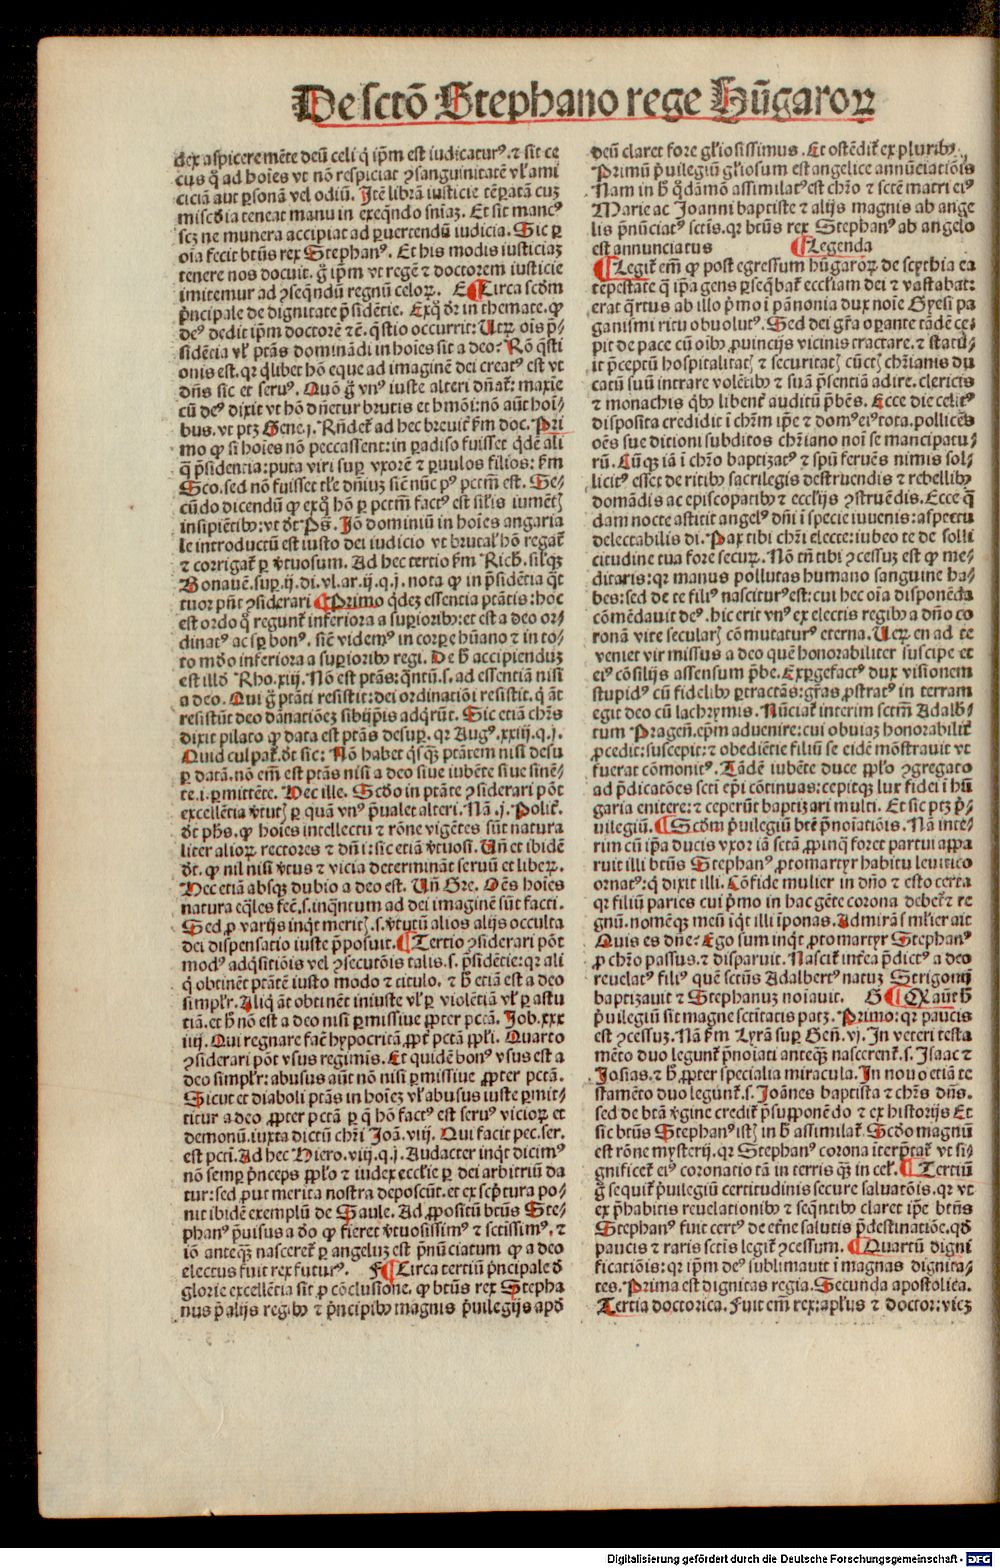 De sctō Stephano rege Hūgaroꝝ
dex aspicere mēte deū celi q̇ ipm̄ est iudicaturꝰ. ⁊ sit ce
cus q̇ ad hoīes vt nō respiciat ꝯsanguinitatē vl' ami
ciciā aut ꝑsonā vel odiū. Itē librā iusticie tēꝑatā cuꝫ
miscd̄ia teneat manu in exeqn̄do sn̄iaꝫ. Et sit mancꝰ
scꝫ ne munera accipiat ad ꝑuertendū iudicia. Sic ꝑ
oīa fecit btūs rex Stephanꝰ. Et his modis iusticiaꝫ
tenere nos docuit. g̊ ipm̄ vt regē ⁊ doctorem iusticie
imitemur ad ꝯseqn̄dū regnū celoꝝ. E ¶ Circa scd̄m
p̄ncipale de dignitate p̄sidētie. Exq̊ dr̄ in themate. ꝙ
deꝰ dedit ipm̄ doctorē ⁊c̄. q̄stio occurrit: Utꝝ oīs p̄⸗
sidētia vl' ptās dominādi in hoīes sit a deo? Rō q̄sti
onis est. qꝛ q̇libet hō eque ad imaginē dei creatꝰ est vt
dn̄s sic et seruꝰ. Quō g̊ vnꝰ iuste alteri dn̄at᷑: maxīe
cū deꝰ dixit vt hō dn̄etur brutis et hmōi: nō aūt hoī⸗
bus. vt ptꝫ Gene.j. Rn̄det᷑ ad hec breuit᷑ ẜm doc. Pri
mo ꝙ si hoīes nō peccassent: in ꝑadiso fuisset q̇dē ali
q̄ p̄sidentia: puta viri suꝑ vxorē ⁊ ꝑuulos filios: ẜm
Sco. sed nō fuisset tl'e dn̄iuꝫ siē nūc pꝰ pctm̄ est. Se⸗
cūdo dicendū ꝙ exq̊ hō ꝑ pctm̄ factꝰ est sil'is iumētꝭ
insipiētibꝰ: vt dt̄ Ps̄. Iō dominiū in hoīes angaria
le introductū est iusto dei iudicio vt brutal' hō regat᷑
⁊ corrigat᷑ ꝑ v̄tuosum. Ad hec tertio ẜm Rich. sil'qꝫ
Bonauē. suꝑ.ij.di.vl.ar.ij.q.j. nota ꝙ in p̄sidētia q̄t
tuor pn̄t ꝯsiderari ¶ Primo q̇dez essentia ptātis: hoc
est ordo q̊ regunt᷑ inferiora a suꝑiorībꝰ: et est a deo or⸗
dinatꝰ ac sꝑ bonꝰ. siē videmꝰ in corꝑe hūano ⁊ in to⸗
to mūdo inferiora a suꝑioribꝰ regi. De h̄ accipienduꝫ
est illd̄ Rho.xiij. Nō est ptās: qn̄tū.s. ad essentiā nisi
a deo. Qui g̊ ptāti resistit: dei ordinatiōi resistit. q̇ āt
resistūt deo dānatiōeꝫ sibi ip̄is adq̇rūt. Sic etiā chr̄s
dixit pilato ꝙ data est ptās desuꝑ. qꝛ Augꝰ.xxiij.q.j.
Quid culpat᷑. dt̄ sic: Nō habet q̇sqꝫ ptātem nisi desu
ꝑ datā. nō em̄ est ptās nisi a deo siue iubēte siue sinē⸗
te.i. ꝑmittēte. Hec ille. Scd̄o in ptāte ꝯsiderari pōt
excellētia v̄tutꝭ ꝑ quā vnꝰ p̄ualet alteri. Nā.j. Polit᷑.
dt̄ phs̄. ꝙ hoīes intellectu ⁊ rōne vigētes sūt natura
liter alioꝝ rectores ⁊ dn̄i: siē etiā v̄tuosi. Un̄ et ibidē
dt̄. ꝙ nil nisi v̄tus ⁊ vicia determināt seruū et liberꝫ.
Hec etiā absqꝫ dubio a deo est. Un̄ Gre. Oēs hoīes
natura eq̄les fec̄. s. inqn̄tum ad dei imaginē sūt facti.
Sed ꝓ varijs inqt meritꝭ .s. v̄tutū alios alijs occulta
dei dispensatio iuste p̄posuit. ¶ Tertio ꝯsiderari pōt
modꝰ adq̇sitiōis vel ꝯsecutōis talis.s. p̄sidētie: qꝛ ali
q̇ obtinēt ptātē iusto modo ⁊ titulo. ⁊ h̄ etiā est a deo
simplr̄. Aliq̇ āt obtinēt iniuste vl' ꝑ violētiā vl' ꝑ astu
tiā. et h̄ nō est a deo nisi ꝑmissiue ꝓpter pctā. Job.xxx
iiij. Qui regnare fac̄ hypocritā ꝓpt᷑ pctā ppl'i. Quarto
ꝯsiderari pōt vsus regimīs. Et quidē bonꝰ vsus est a
deo simplr̄: abusus aūt nō nisi ꝑmissiue ꝓpter pctā.
Sicut et diaboli ptās in hoīeꝫ vl' abusus iuste ꝑmit⸗
titur a deo ꝓpter pctā ꝑ q̄ hō factꝰ est seruꝰ vicioꝝ et
demonū. iuxta dictū chr̄i Joā.viij. Qui facit pec. ser.
est pcti. Ad hec Hiero.viij.q.j. Audacter inqt dicimꝰ
nō semꝑ p̄nceps ppl'o ⁊ iudex eccl'ie ꝑ dei arbitriū da
tur: sed ꝓut merita nostra deposcūt. et ex scp̄tura po⸗
nit ibidē exemplū de Saule. Ad ꝓpositū btūs Ste⸗
phanꝰ p̄uisus a deo ꝙ fieret v̄tuosissimꝰ ⁊ sctissimꝰ. ⁊
iō anteqꝫ nasceret᷑ ꝑ angeluꝫ est p̄nūciatum ꝙ a deo
electus fuit rex futurꝰ. F ¶ Circa tertiū p̄ncipale d̄
glorie excellētia sit ꝓ cōclusione. ꝙ btūs rex Stepha
nus p̄ alijs regibꝰ ⁊ p̄ncipibꝰ magnis p̄uilegijs apd̄
deū claret fore gl'iosissimus. Et ostēdit᷑ ex pluribꝰ.
Primū p̄uilegiū gl'iosum est angelice annūciatiōis
Nam in h̄ q̊dāmō assimilatꝰ est chr̄o ⁊ sctē matri eiꝰ
Marie ac Joanni baptiste ⁊ alijs magnis ab ange
lis p̄nūciatꝰ sctis. qꝛ btūs rex Stephanꝰ ab angelo
est annunciatus ¶ Legenda
¶ Legit᷑ em̄ ꝙ post egressum hūgaroꝝ de scythia ea
tēpestate q̄ ipa gens ꝑseqbat᷑ eccl'iam dei ⁊ vastabat:
erat q̄rtus ab illo p̄mo ī pānonia dux noīe Gyesi pa
ganismi ritu obuolutꝰ. Sed dei gr̄a oꝑante tādē ce⸗
pit de pace cū oībꝰ ꝓuincijs vicinis tractare. ⁊ statu⸗
it p̄ceptū hospitalitatꝭ ⁊ securitatꝭ cūctꝭ chr̄ianis du
catū suū intrare volētibꝰ ⁊ suā p̄sentiā adire. clericis
⁊ monachis q̇bꝰ libent᷑ auditū p̄bēs. Ecce die celitꝰ
disposita credidit ī chr̄m ipe ⁊ domꝰ eiꝰ tota. pollicēs
oēs sue ditioni subditos chr̄iano noī se mancipatu⸗
rū. Cūqꝫ iā ī chr̄o baptizatꝰ ⁊ spū feruēs nimis sol⸗
licitꝰ esset de ritibꝰ sacrilegis destruendis ⁊ rebellibꝰ
domādis ac episcopatibꝰ ⁊ eccl'ijs ꝯstruēdis. Ecce q̄
dam nocte astitit angelꝰ dn̄i ī specie iuvenis: aspectu
delectabilis di. Pax tibi chr̄i electe: iubeo te de solli
citudine tua fore securꝫ. Nō tn̄ tibi ꝯcessuꝫ est ꝙ me⸗
ditaris: qꝛ manus pollutas humano sanguine ha⸗
bes: sed de te filiꝰ nasciturꝰ est: cui hec oīa disponēda
cōmēdavit deꝰ. hic erit vnꝰ ex electis regibꝰ a dn̄o co
ronā vite secularꝭ cōmutaturꝰ eterna. Uerꝫ en ad te
veniet vir missus a deo quē honorabiliter suscipe et
eiꝰ cōsilijs assensum p̄be. Exꝑgefactꝰ dux visionem
stupidꝰ cū fidelibꝰ ꝑtractās: gr̄as ꝓstratꝰ in terram
egit deo cū lachrymis. Nūciat᷑ interim sctm̄ Adalb̄⸗
tum Pragen̄. epm̄ advenire: cui obuiaꝫ honorabilit᷑
ꝓcedit: suscepit: ⁊ obediētie filiū se eidē mōstrauit vt
fuerat cōmonitꝰ. Tādē iubēte duce ppl'o ꝯgregato
ad p̄dicatōes scti epi cōtinuas: cepitqꝫ lux fidei ī hū
garia enitere: ⁊ ceperūt baptizari multi. Et sic ptꝫ p̄⸗
uilegiū. ¶ Scd̄m p̄uilegiū btē p̄noīatiōis. Nā inte⸗
rim cū ipa ducis vxor iā sctā ꝓpinq̄ foret partui appa
ruit illi btūs Stephanꝰ ꝓtomartyr habitu leuitico
ornatꝰ: q̇ dixit illi. Cōfide mulier in dn̄o ⁊ esto certa
qꝛ filiū paries cui p̄mo in hac gēte corona debet᷑ ⁊ re
gnū. nomēqꝫ meū iq̇t illi īponas. Admirās ml'ier ait
Quis es dn̄e? Ego sum inqt ꝓtomartyr Stephanꝰ
ꝓ chr̄o passus. ⁊ disparuit. Nascit᷑ intea p̄dictꝰ a deo
reuelatꝰ filiꝰ quē sctūs Adalbertꝰ natuꝫ Strigonij
baptizauit ⁊ Stephanuꝫ noīauit. G ¶ Qꝛ aūt h̄
p̄uilegiū sit magne sctitatis patꝫ. Primo: qꝛ paucis
est ꝯcessuꝫ. Nā ẜm Lyrā suꝑ Gen̄.vj. In veteri testa
mēto duo legunt᷑ p̄noīati anteqꝫ nascerent᷑.s. Isaac ⁊
Josias. ⁊ h̄ ꝓpter specialia miracula. In nouo etiā te
stamēto duo legunt᷑.s. Joānes baptista ⁊ chr̄s dn̄s.
sed de btā v̄gine credit᷑ p̄supponēdo ⁊ ex historijs Et
sic btūs Stephanꝰ istꝭ in h̄ assimilat᷑. Scd̄o magnū
est rōne mysterij. qꝛ Stephanꝰ corona īterp̄tat᷑ vt si⸗
gnificet᷑ eiꝰ coronatio tā in terris qꝫ in cel'. ¶ Tertiū
g̊ sequit᷑ p̄uilegiū certitudinis secure saluatōis. qꝛ vt
ex p̄habitis reuelationibꝰ ⁊ seqn̄tibꝰ claret ipe btūs
Stephanꝰ fuit certꝰ de etn̄e salutis p̄destinatiōe. qd̄
paucis ⁊ raris sctis legit᷑ ꝯcessum. ¶ Quartū digni
ficatiōis: qꝛ ipm̄ deꝰ sublimauit ī magnas dignita⸗
tes. Prima est dignitas regia. Secunda apostolica.
Tertia doctorica. Fuit em̄ rex: apl'us ⁊ doctor: vicꝫ
Digitalisierung gefördert durch die Deutsche Forschungsgemeinschaft - DFG